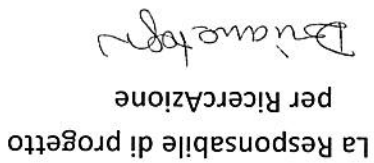 La Responsabile di progetto
per RicercAzione